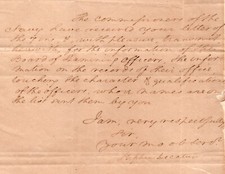 The commissioners of the
Navy have received your letter of
the
for the information of the
Board of Examining Officers, the infor-
mation on the records of this office
touching the character & qualifications
of the officers, whose names are on
the list sent them by you
I am, very respectfully
Sir,
Your mo ob Servt